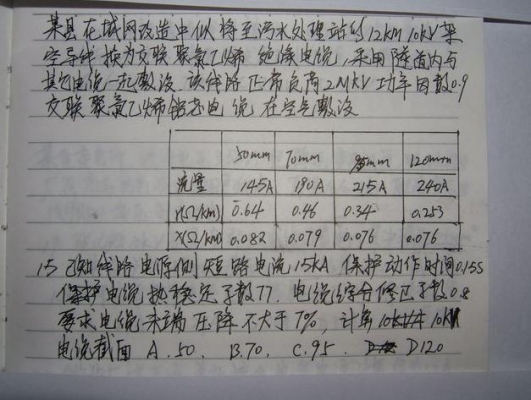 某县在城网改造中似将至污水处理站的12KM 10KV架
空导线 换为交联聚氯乙烯 绝缘电缆，采用隧道内与
其它电缆一起敷设 该线路正常负荷2MKV 功率因数0.9
交联聚氯乙烯铝芯电缆在空气敷设
50mm 70mm 95mm 120mm
流量 145A 190A 215A 240A
r(Ω/km) 0.64 0.46 0.34 0.253
X(Ω/km) 0.082 0.079 0.076 0.076
15 已知线路电源侧短路电流15KA 保护动作时间0.15S
保护电缆热稳定子数77. 电缆综合修正子数0.8
要求电缆末端压降不大于7%，计算 10KV
电缆截面 A. 50. B.70. C.95. D120